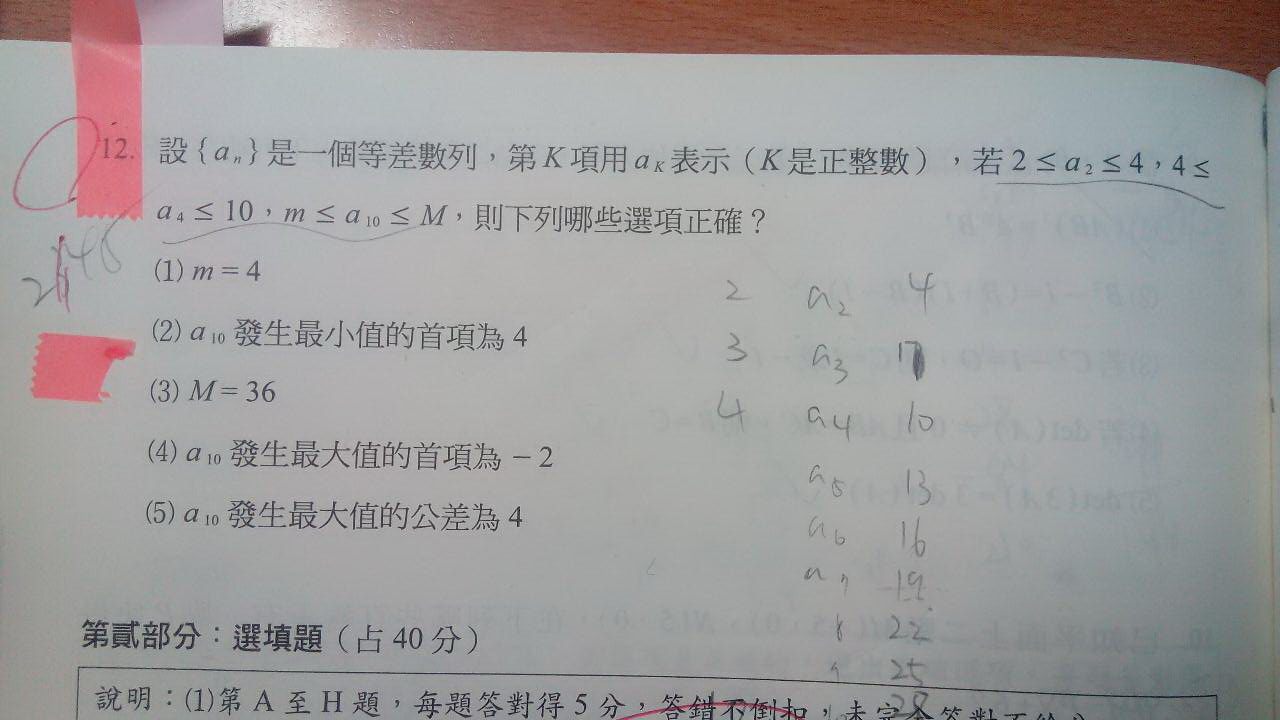 12. 設{aₙ}是一個等差數列，第K項用aₖ表示（K是正整數），若2≤a₂≤4，4≤
a₄≤10，m≤a₁₀≤M，則下列哪些選項正確？
(1) m=4
(2) a₁₀發生最小值的首項為4
(3) M=36
(4) a₁₀發生最大值的首項為−2
(5) a₁₀發生最大值的公差為4
2 a₂ 4
3 a₃ 7
4 a₄ 10
a₅ 13
a₆ 16
a₇ 19
8 22
9 25
28
第貳部分：選填題（占40分）
說明：(1)第A至H題，每題答對得5分，答錯不倒扣，未完全答對不給分